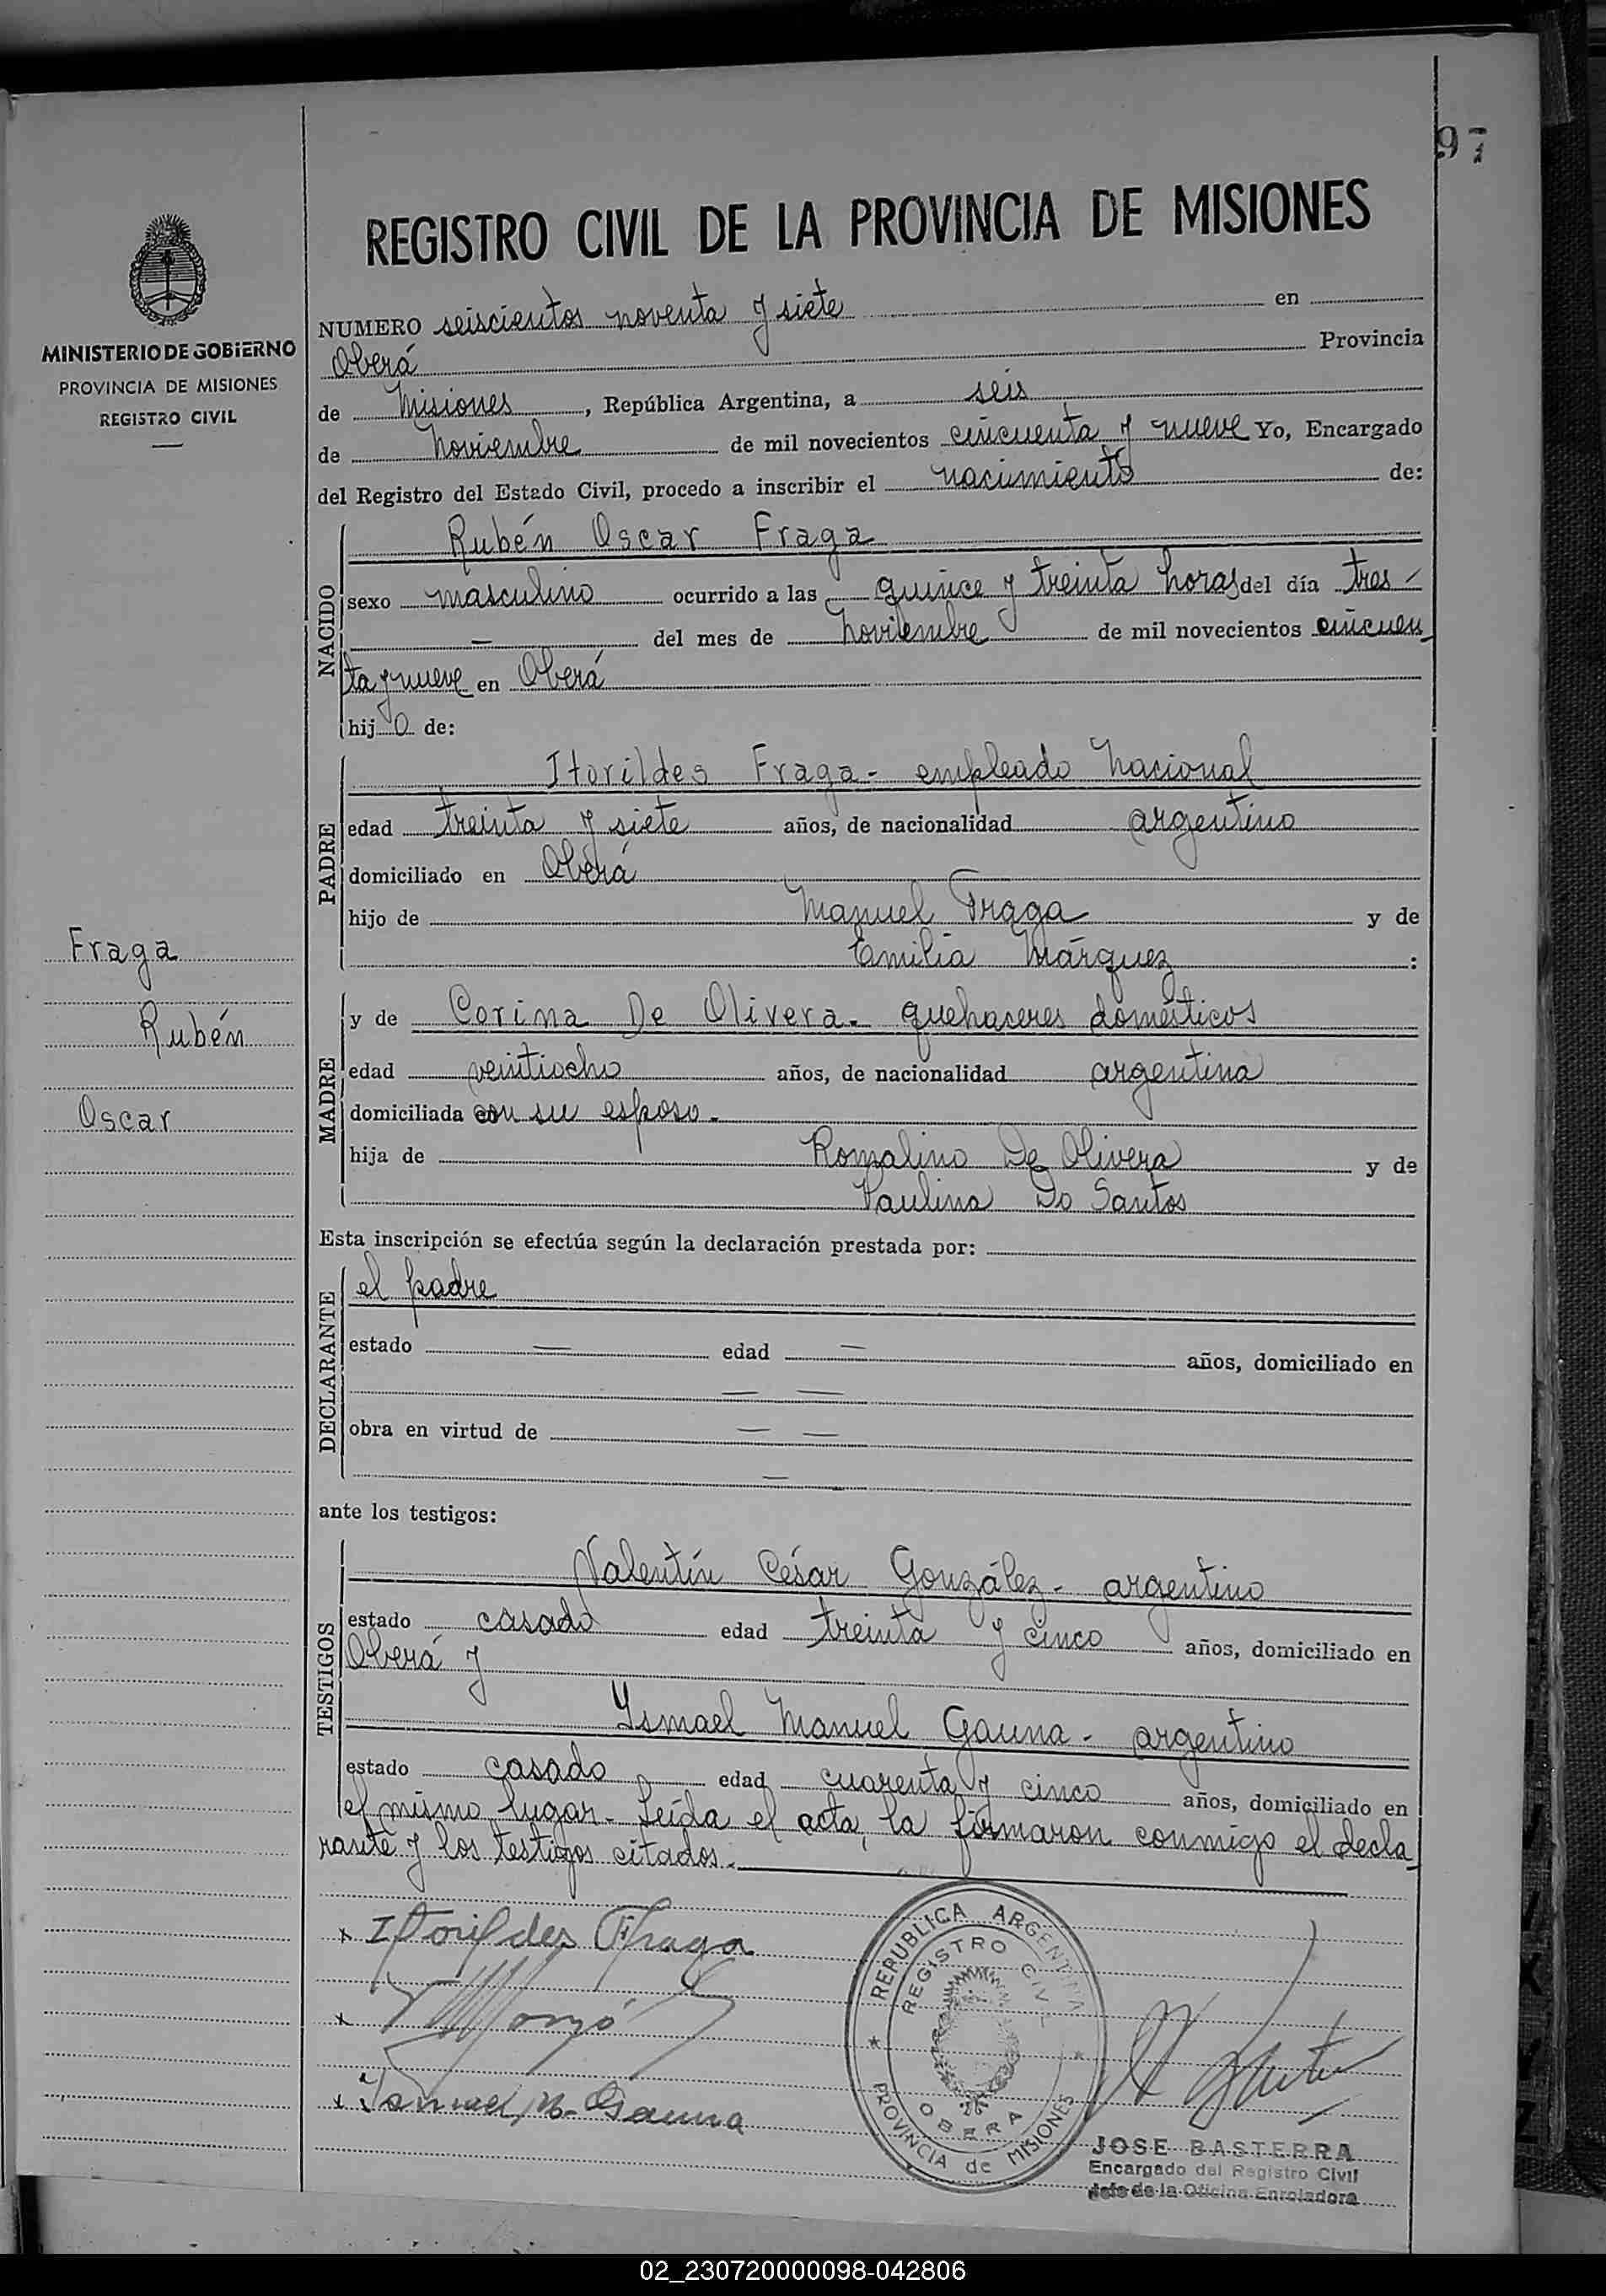 97
REGISTRO CIVIL DE LA PROVINCIA DE MISIONES
MINISTERIO DE GOBIERNO
PROVINCIA DE MISIONES
REGISTRO CIVIL
NUMERO seiscientos noventa y siete en
Oberá Provincia
de Misiones, República Argentina, a seis
de Noviembre de mil novecientos cincuenta y nueve Yo, Encargado
del Registro del Estado Civil, procedo a inscribir el nacimiento de:
NACIDO
Rubén Oscar Fraga
sexo masculino ocurrido a las quince y treinta horas del día tres -
— del mes de Noviembre de mil novecientos cincuen
ta y nueve en Oberá
hijo de:
PADRE
Itorildes Fraga - empleado Nacional
edad treinta y siete años, de nacionalidad argentino
domiciliado en Oberá
hijo de Manuel Fraga y de
Emilia Márquez :
Fraga
Rubén
Oscar
MADRE
y de Corina De Olivera - quehaceres domésticos
edad veintiocho años, de nacionalidad argentina
domiciliada con su esposo.
hija de Romalino De Olivera y de
Paulina Do Santos
Esta inscripción se efectúa según la declaración prestada por:
DECLARANTE
el padre
estado — edad — años, domiciliado en
— —
obra en virtud de — —
—
ante los testigos:
TESTIGOS
Valentín César González - argentino
estado casado edad treinta y cinco años, domiciliado en
Oberá y
Ysmael Manuel Gauna - argentino
estado casado edad cuarenta y cinco años, domiciliado en
el mismo lugar - Leída el acta, la firmaron conmigo el decla
rante y los testigos citados.
x Itorildes Fraga
x
x Ismael M. Gauna
REPUBLICA ARGENTINA
REGISTRO CIVIL
OBERA
PROVINCIA de MISIONES
JOSE BASTERRA
Encargado del Registro Civil
Jefe de la Oficina Enroladora
02_230720000098-042806